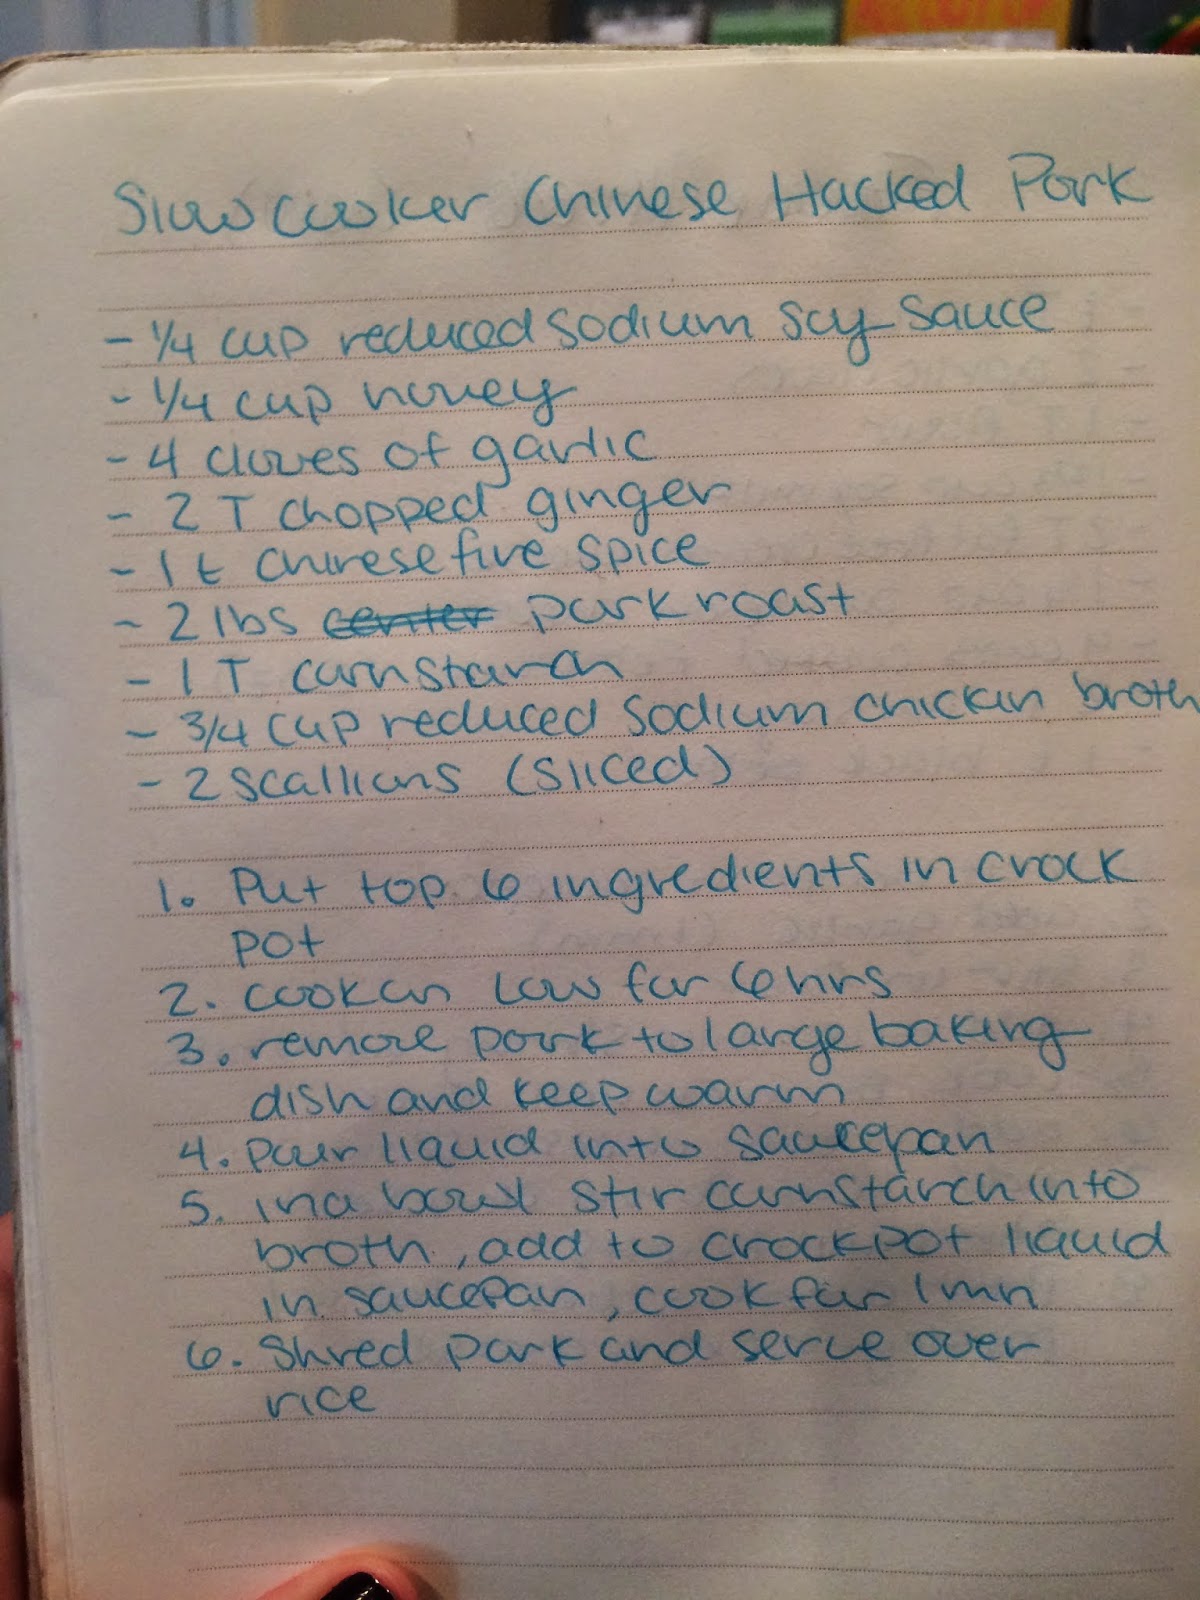 Slow cooker Chinese Hacked Pork
- 1/4 cup reduced sodium soy sauce
- 1/4 cup honey
- 4 cloves of garlic
- 2 T chopped ginger
- 1 t Chinese five spice
- 2 lbs center pork roast
- 1 T cornstarch
- 3/4 cup reduced sodium chicken broth
- 2 scallions (sliced)
1. Put top 6 ingredients in crock
pot
2. cook on low for 6 hrs
3. remove pork to large baking
dish and keep warm
4. pour liquid into saucepan
5. in a bowl stir cornstarch into
broth, add to crockpot liquid
in saucepan, cook for 1 mn
6. Shred pork and serve over
rice